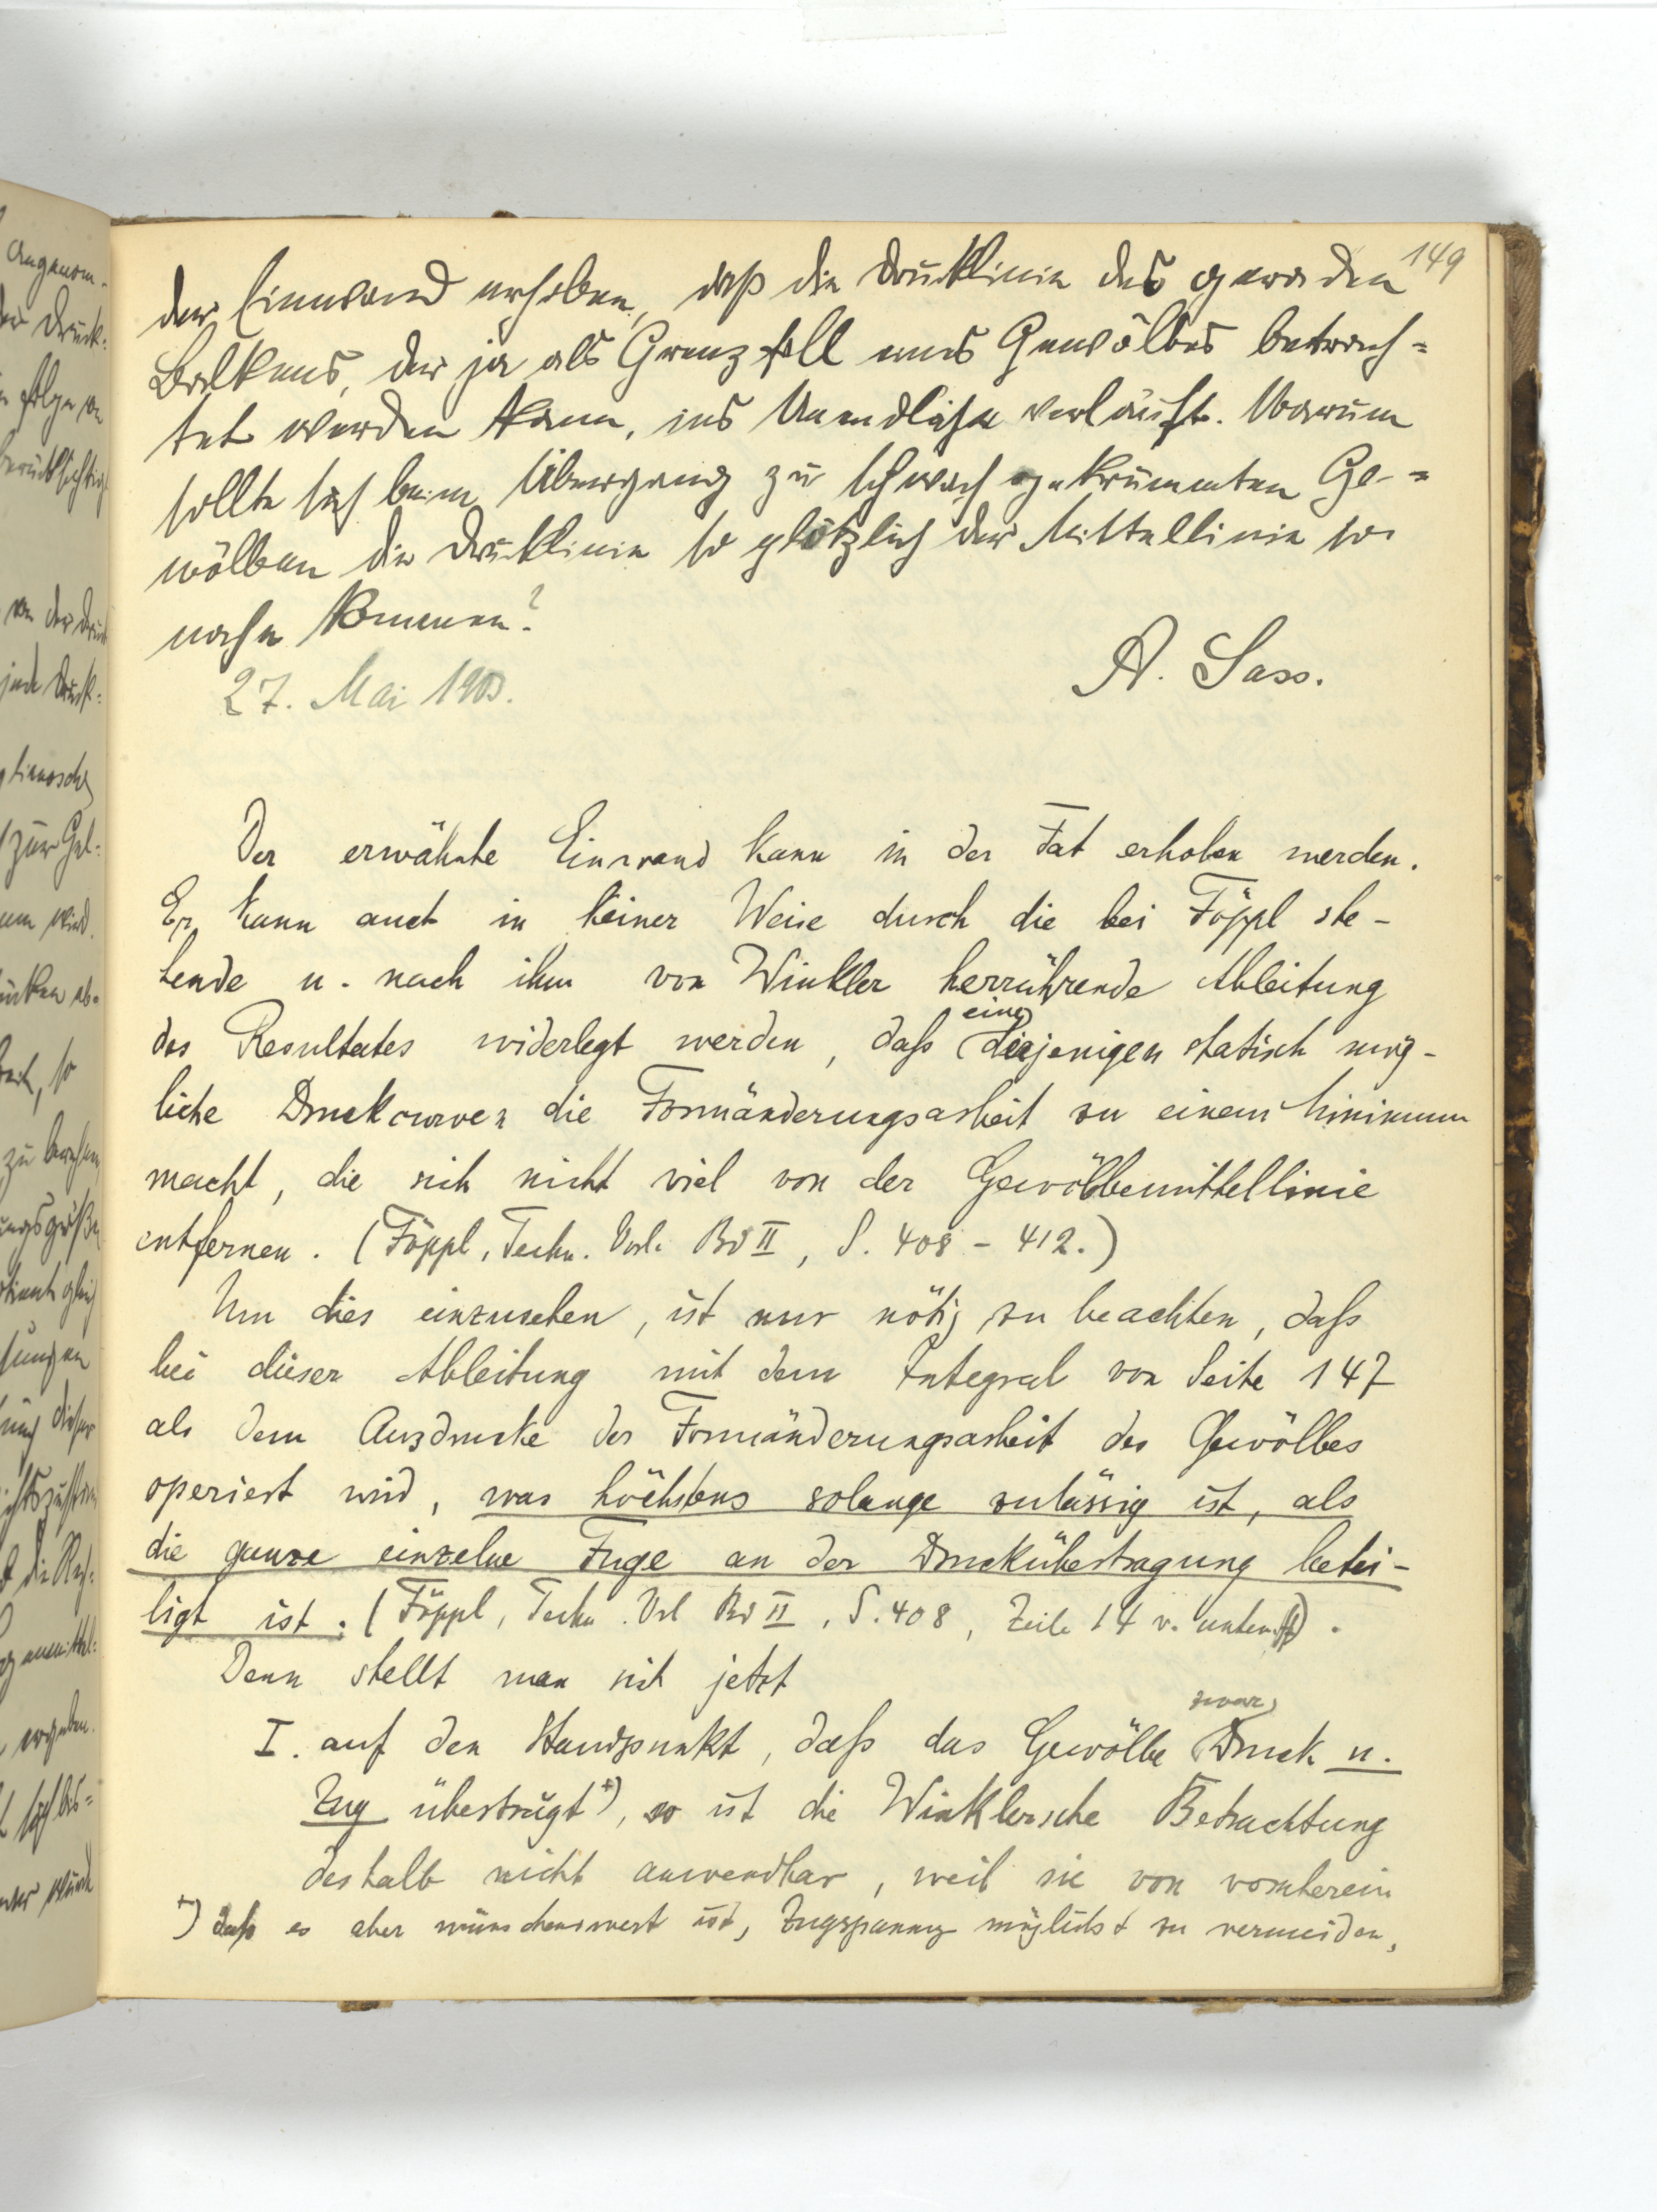 149
der Einwand erhoben, daß die Drucklinie des geraden
Balkens, der ja als Grenzfall eines Gewölbes betrach=
tet werden kann, ins Unendliche verläuft. Warum
sollte sich beim Übergang zu schwach gekrümmten Ge-=
wölben die Drucklinie so plötzlich der Mittellinie so
nahe kommen?
A. Sass.
27. Mai 1903.
Der erwähnte Einwand kann in der Tat erhoben werden.
Er kann auch in keiner Weise durch die bei Föppl ste-
hende u. nach ihm von Winkler herrührende Ableitung
des Resultates widerlegt werden, daß eine derjenigen statisch mög-
liche Druckcurven die Formänderungsarbeit zu einem Minimum
macht, die sich nicht viel von der Gewölbemittellinie
entfernen. (Föppl, Techn. Vorl. Bd II, S. 408 - 412.)
Um dies einzusehen, ist nur nötig zu beachten, daß
bei dieser Ableitung mit dem Integral von Seite 147
als dem Ausdrucke der Formänderungsarbeit des Gewölbes
operiert wird, was höchstens solange zulässig ist, als
die ganze einzelne Fuge an der Druckübertragung betei-
ligt ist. (Föppl, Techn. Vrl Bd II, S. 408, Zeile 14 v. unten ff).
Denn stellt man sich jetzt
I. auf den Standpunkt, daß das Gewölbe zwar Druck u.
Zug überträgt +), so ist die Winklersche Betrachtung
deshalb nicht anwendbar, weil sie von vornherein
+) daß es aber wünschenswert ist, Zugspannung möglichst zu vermeiden,